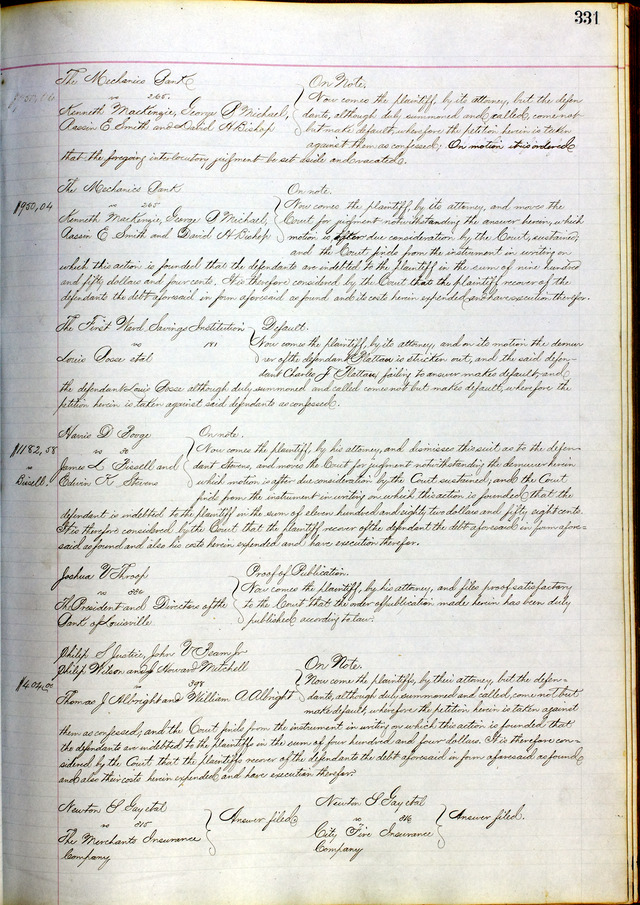 331
The Mechanics Bank
vs 265.
Kenneth Mackenzie, George P Michael,
Rassin E. Smith and David H Bishop
On Note.
Now comes the plaintiff, by its attorney, but the defen-
dants, although duly summoned and called, come not
but make default, wherefore the petition herein is taken
against them as confessed; On motion it is ordered
that the foregoing interlocutory judgment be set aside and vacated.
The Mechanics Bank
$950,04
vs 265
Kenneth Mackenzie, George P Michael,
Rassin E Smith and David H Bishop
On note.
Now comes the plaintiff, by its attorney, and moves the
Court for judgment notwithstanding the answer herein, which
motion is after due consideration by the Court, sustained;
and the Court finds from the instrument in writing on
which this action is founded that the defendants are indebted to the plaintiff in the sum of nine hundred
and fifty dollars and four cents. It is therefore considered by the Court that the plaintiff recover of the
defendants the debt aforesaid in form aforesaid as found and its costs herein expended and have execution therefor.
The First Ward Savings Institution
vs 181
Louis Posse et al
Default.
Now comes the plaintiff, by its attorney, and on its motion the demur-
rer of the defendant Flattau is stricken out, and the said defen-
dant Charles J Flattau, failing to answer makes default, and
the defendant Louis Posse although duly summoned and called comes not but makes default, wherefore the
petition herein is taken against said defendants as confessed.
$1182,58
vs
Bissell.
James L Bissell and
Edwin K Stevens
On note.
Now comes the plaintiff, by his attorney, and dismisses this suit as to the defen-
dant Stevens, and moves the Court for judgment notwithstanding the demurrer herein
which motion is after due consideration by the Court sustained; and the Court
finds from the instrument in writing on which this action is founded that the
defendant is indebted to the plaintiff in the sum of eleven hundred and eighty two dollars and fifty eight cents.
It is therefore considered by the Court that the plaintiff recover of the defendant the debt aforesaid in form afore=
said as found and also his costs herein expended and have execution therefor.
Joshua V Throop
vs
The President and Directors of the
Bank of Louisville
Proof of Publication.
Now comes the plaintiff, by his attorney, and files proof satisfactory
to the Court that the order of publication made herein has been duly
published according to law.
Philip S Justice, John V
Philip Wilson and J Howard Mitchell
$404,00
vs 398
Thomas J Albright and William A Albright
On Note.
Now come the plaintiffs, by their attorney, but the defen-
dants, although duly summoned and called, come not but
make default, wherefore the petition herein is taken against
them as confessed, and the Court finds from the instrument in writing on which this action is founded that
the defendants are indebted to the plaintiffs in the sum of four hundred and four dollars. It is therefore con-
sidered by the Court that the plaintiffs recover of the defendants the debt aforesaid in form aforesaid as found
and also their costs herein expended and have execution therefor.
Newton S Gay et al
vs 215
The Merchants Insurance
Company
Answer filed
Newton S Gay et al
vs 216
City Fire Insurance
Company
Answer filed.